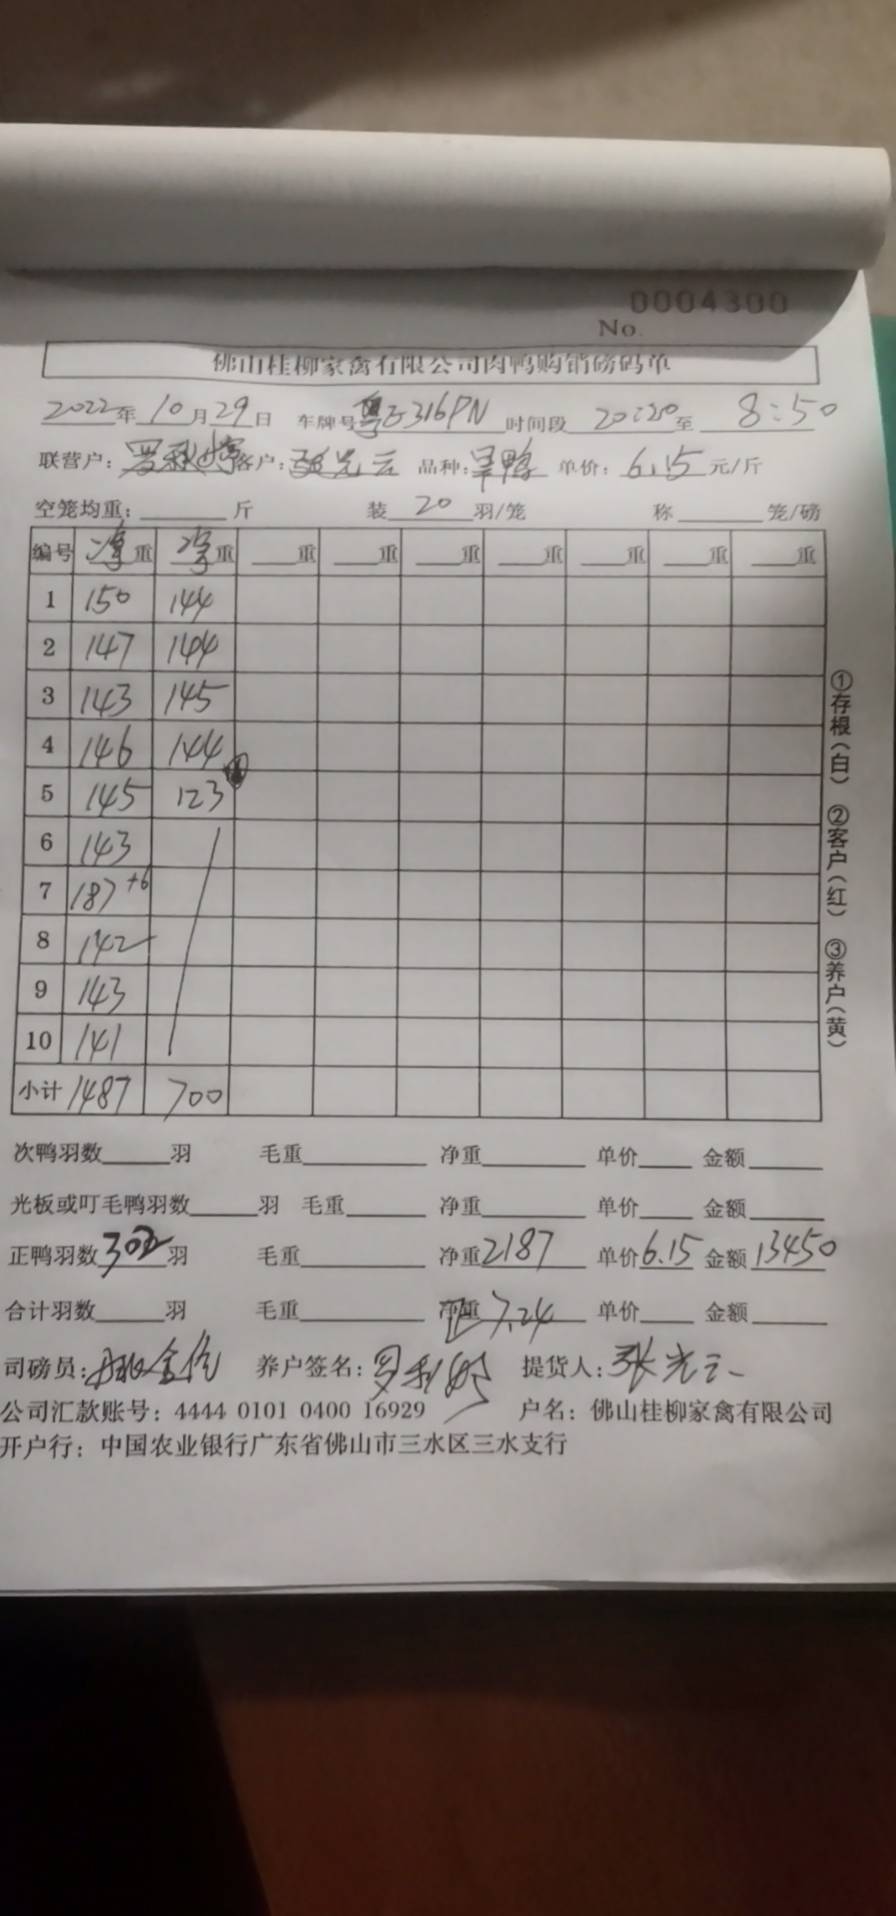 0004300
No.
佛山桂柳家禽有限公司肉鸭购销磅码单
2022年10月29日 车牌号粤E316PN 时间段20:20至8:50
联营户: 客户:张光云 品种:旱鸭 单价:6.15元/斤
空笼均重:斤 装20羽/笼 称笼/磅
编号 净重 净重 重 重 重 重 重 重 重
1 150 144
2 147 144
3 143 145
4 146 144
5 145 123
6 143
7 187+6
8 142
9 143
10 141
小计 1487 700
①存根(白) ②客户(红) ③养户(黄)
次鸭羽数羽 毛重 净重 单价 金额
光板或叮毛鸭羽数羽 毛重 净重 单价 金额
正鸭羽数302羽 毛重 净重2187 单价6.15 金额13450
合计羽数羽 毛重 净重7.24 单价 金额
司磅员: 养户签名:罗利 提货人:张光云
公司汇款账号:4444 0101 0400 16929 户名:佛山桂柳家禽有限公司
开户行:中国农业银行广东省佛山市三水区三水支行